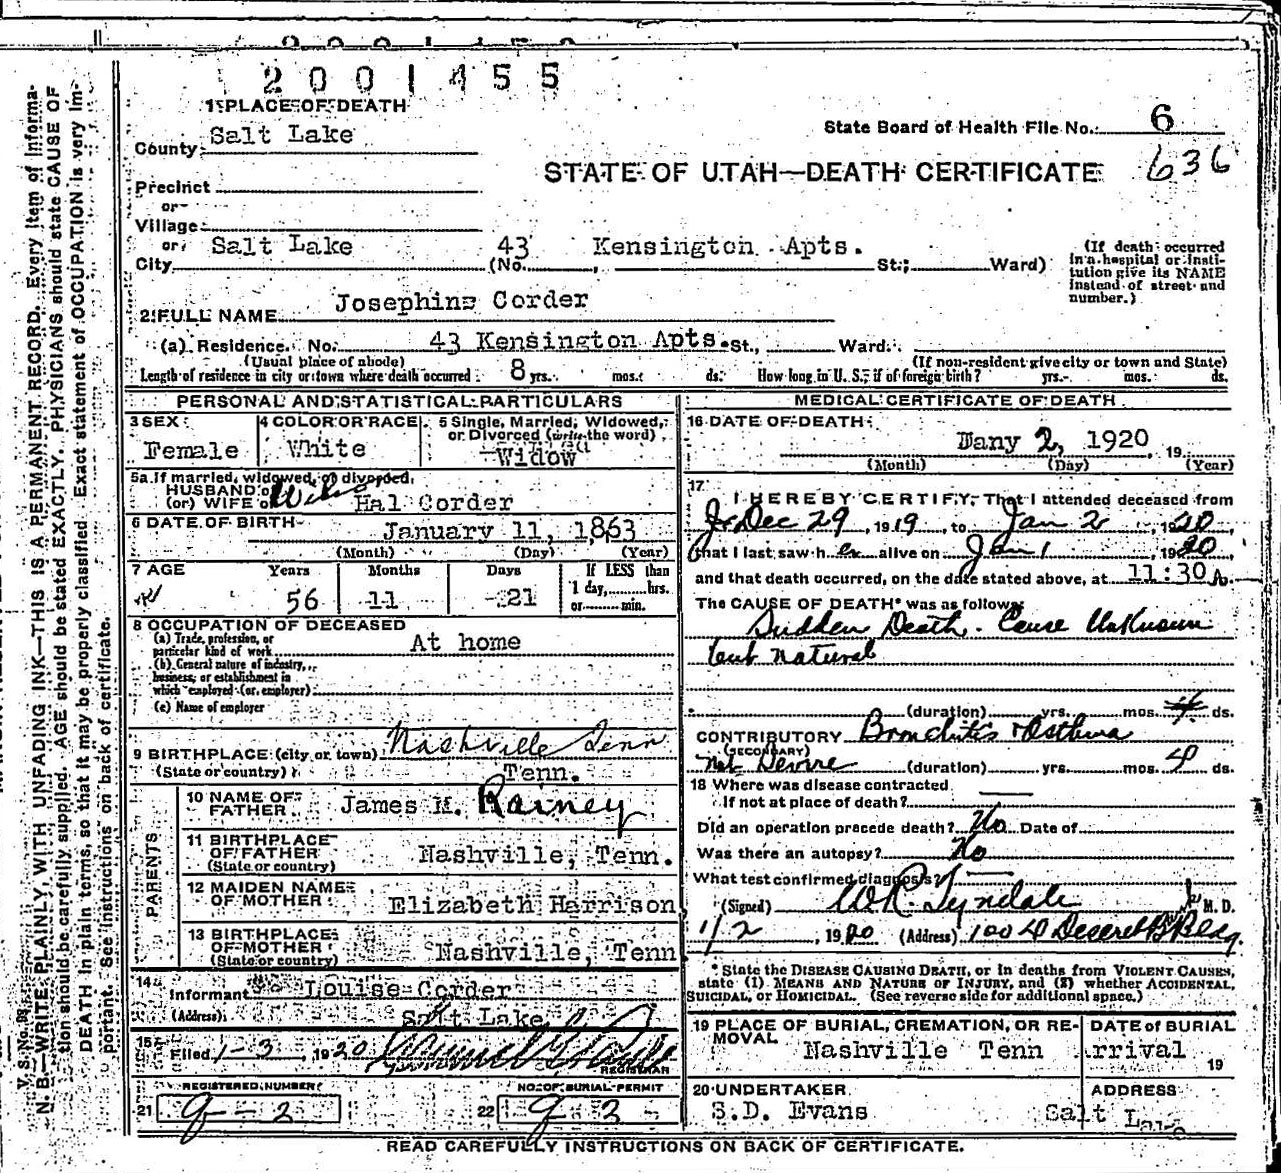 2001455
1 PLACE OF DEATH
State Board of Health File No. 6
County Salt Lake
STATE OF UTAH—DEATH CERTIFICATE 636
Precinct
or
Village
or Salt Lake 43 Kensington Apts.
City (No. , St.; Ward)
(If death occurred in a hospital or institution give its NAME instead of street and number.)
2 FULL NAME Josephine Corder
(a) Residence. No. 43 Kensington Apts. St., Ward.
(Usual place of abode) (If non-resident give city or town and State)
Length of residence in city or town where death occurred 8 yrs. mos. ds. How long in U. S., if of foreign birth? yrs. mos. ds.
PERSONAL AND STATISTICAL PARTICULARS
3 SEX 4 COLOR OR RACE 5 Single, Married, Widowed, or Divorced (write the word)
Female White Widow
5a If married, widowed, or divorced,
HUSBAND of
(or) WIFE of Hal Corder
6 DATE OF BIRTH January 11, 1863
(Month) (Day) (Year)
7 AGE Years Months Days If LESS than
1 day, hrs.
56 11 21 or min.
8 OCCUPATION OF DECEASED
(a) Trade, profession, or
particular kind of work At home
(b) General nature of industry,
business, or establishment in
which employed (or employer)
(c) Name of employer
9 BIRTHPLACE (city or town) Nashville Tenn
(State or country) Tenn.
PARENTS
10 NAME OF
FATHER James M. Rainey
11 BIRTHPLACE
OF FATHER Nashville, Tenn.
(State or country)
12 MAIDEN NAME
OF MOTHER Elizabeth Harrison
13 BIRTHPLACE
OF MOTHER Nashville, Tenn
(State or country)
14
Informant Louise Corder
(Address) Salt Lake
15
Filed 1-3, 1920
REGISTRAR
REGISTERED NUMBER NO. OF BURIAL PERMIT
21 9-2 22 9 2
MEDICAL CERTIFICATE OF DEATH
16 DATE OF DEATH
Dany 2, 1920, 19
(Month) (Day) (Year)
17
I HEREBY CERTIFY, That I attended deceased from
Dec 29, 1919, to Jan 2, 1920,
that I last saw her alive on Jan 1, 1920,
and that death occurred, on the date stated above, at 11:30 A.
The CAUSE OF DEATH* was as follows:
Sudden Death. Cause Unknown
but natural
(duration) yrs. mos. ds.
CONTRIBUTORY Bronchitis & Asthma
(SECONDARY)
not Sevire (duration) yrs. mos. 4 ds.
18 Where was disease contracted
If not at place of death?
Did an operation precede death? No Date of
Was there an autopsy? No
What test confirmed diagnosis?
(Signed) W R Tyndale Jr M. D.
1/2, 1920 (Address) 1004 Deseret B Bldg.
* State the DISEASE CAUSING DEATH, or in deaths from VIOLENT CAUSES,
state (1) MEANS AND NATURE OF INJURY, and (2) whether ACCIDENTAL,
SUICIDAL, or HOMICIDAL. (See reverse side for additional space.)
19 PLACE OF BURIAL, CREMATION, OR RE-
MOVAL
DATE of BURIAL
Nashville Tenn Arrival 19
20 UNDERTAKER ADDRESS
S.D. Evans Salt Lake
READ CAREFULLY INSTRUCTIONS ON BACK OF CERTIFICATE.
V. S. No. 98
N. B.—WRITE PLAINLY, WITH UNFADING INK—THIS IS A PERMANENT RECORD. Every item of informa-
tion should be carefully supplied. AGE should be stated EXACTLY. PHYSICIANS should state CAUSE OF
DEATH in plain terms, so that it may be properly classified. Exact statement of OCCUPATION is very im-
portant. See instructions on back of certificate.